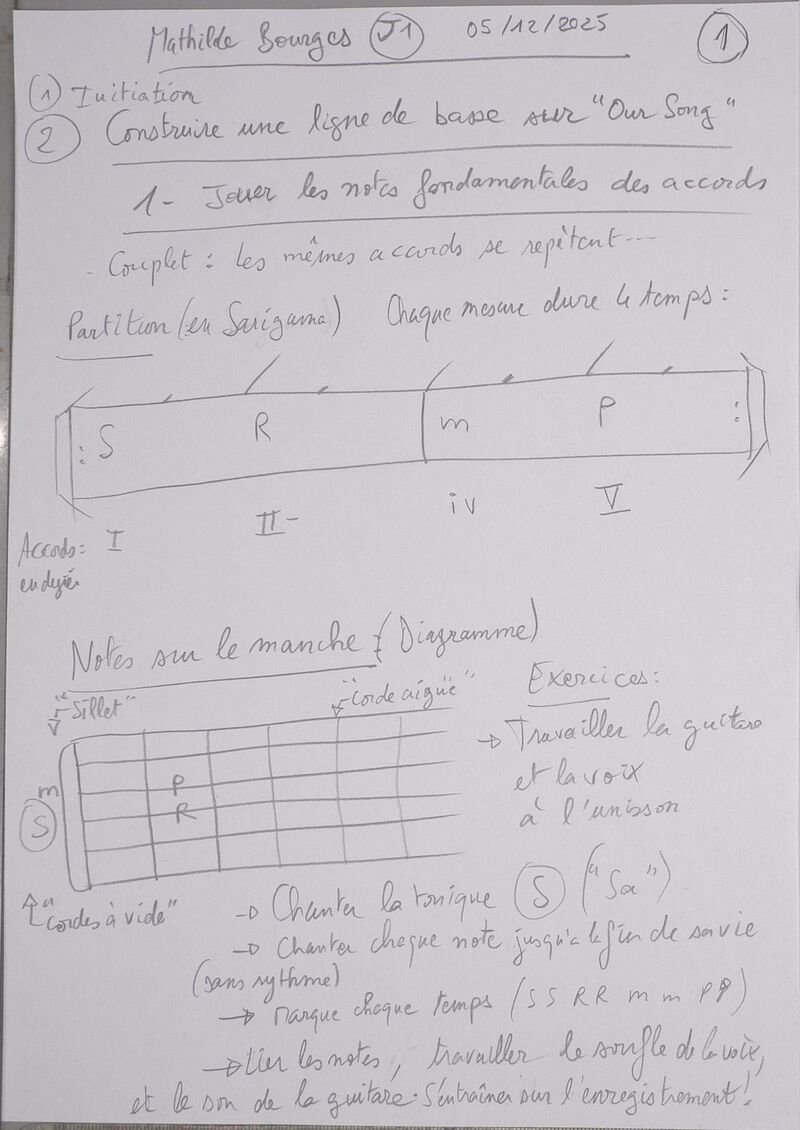 Mathilde Bourges J1 05/12/2025 1
1 Initiation
2 Construire une ligne de basse sur "Our Song"
1- Jouer les notes fondamentales des accords
- Couplet : Les mêmes accords se repètent ---
Partition (en Sarigama) Chaque mesure dure 4 temps :
: S R m P :
Accords : I II- iv V
en degré
Notes sur le manche : (Diagramme)
"Sillet" "Corde aiguë" Exercices :
→ Travailler la guitare
et la voix
à l'unisson
m P
S R
"Cordes à vide"
→ Chanter la tonique S ("Sa")
→ Chanter chaque note jusqu'à la fin de sa vie
(sans rythme)
→ Marque chaque temps (S S R R m m P P)
→ Lier les notes, travailler le soufle de la voix,
et le son de la guitare. S'entraîner sur l'enregistrement !